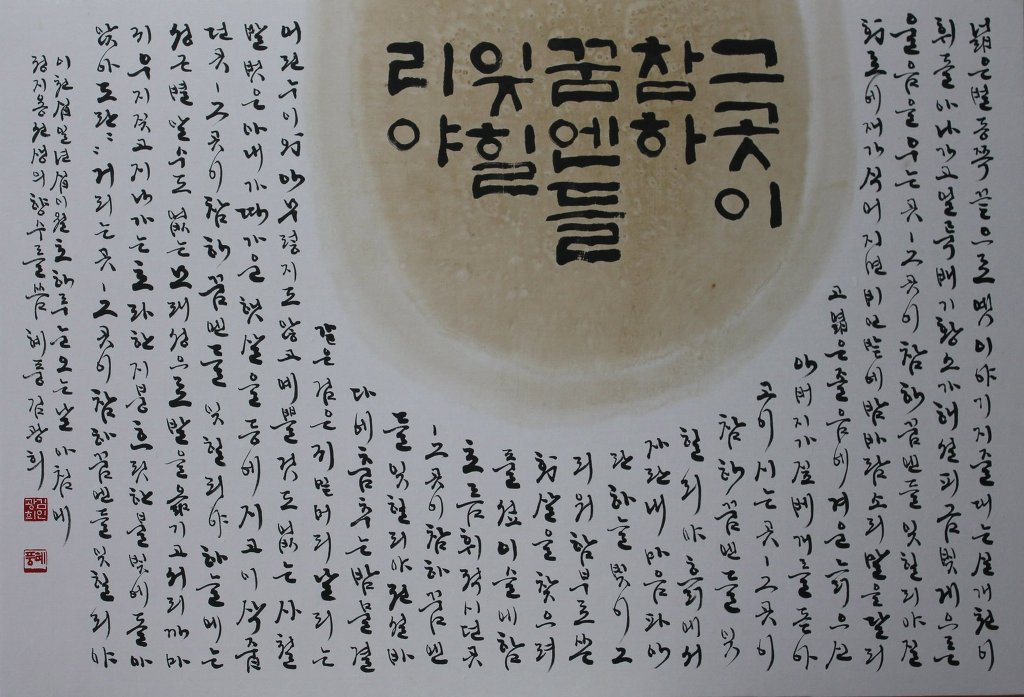 그곳이
참하
꿈엔들
잊힐
리야
넓은벌동쪽끝으로옛이야기지줄대는실개천이
휘돌아나가고얼룩배기황소가해설피금빛게으른
울음을우는곳-그곳이참하꿈엔들잊힐리야질
화로에재가식어지면비인밭에밤바람소리말을달리
고엷은졸음에겨운늙으신
아버지가짚베개를돋아
고이시는곳-그곳이
참하꿈엔들잊
힐리야흙에서
자란내마음파아
란하늘빛이그
리워함부로쏜
화살을찾으려
풀섶이슬에함
초롬휘적시던곳
-그곳이참하꿈엔
들잊힐리야전설바
다에춤추는밤물결
같은검은귀밑머리날리는
어린누이와아무렇지도않고예쁠것도없는사철
발벗은아내가따가운햇살을등에지고이삭줍
던곳-그곳이참하꿈엔들잊힐리야하늘에는
성근별알수도없는모래성으로발을옮기고서리까마
귀우지짖고지나가는초라한지붕흐릿한불빛에돌아
앉아도란도란거리는곳-그곳이참하꿈엔들잊힐리야
이천십일년십이월초하루눈오는날아침에
정지용선생의향수를씀 혜풍김광희
혜풍